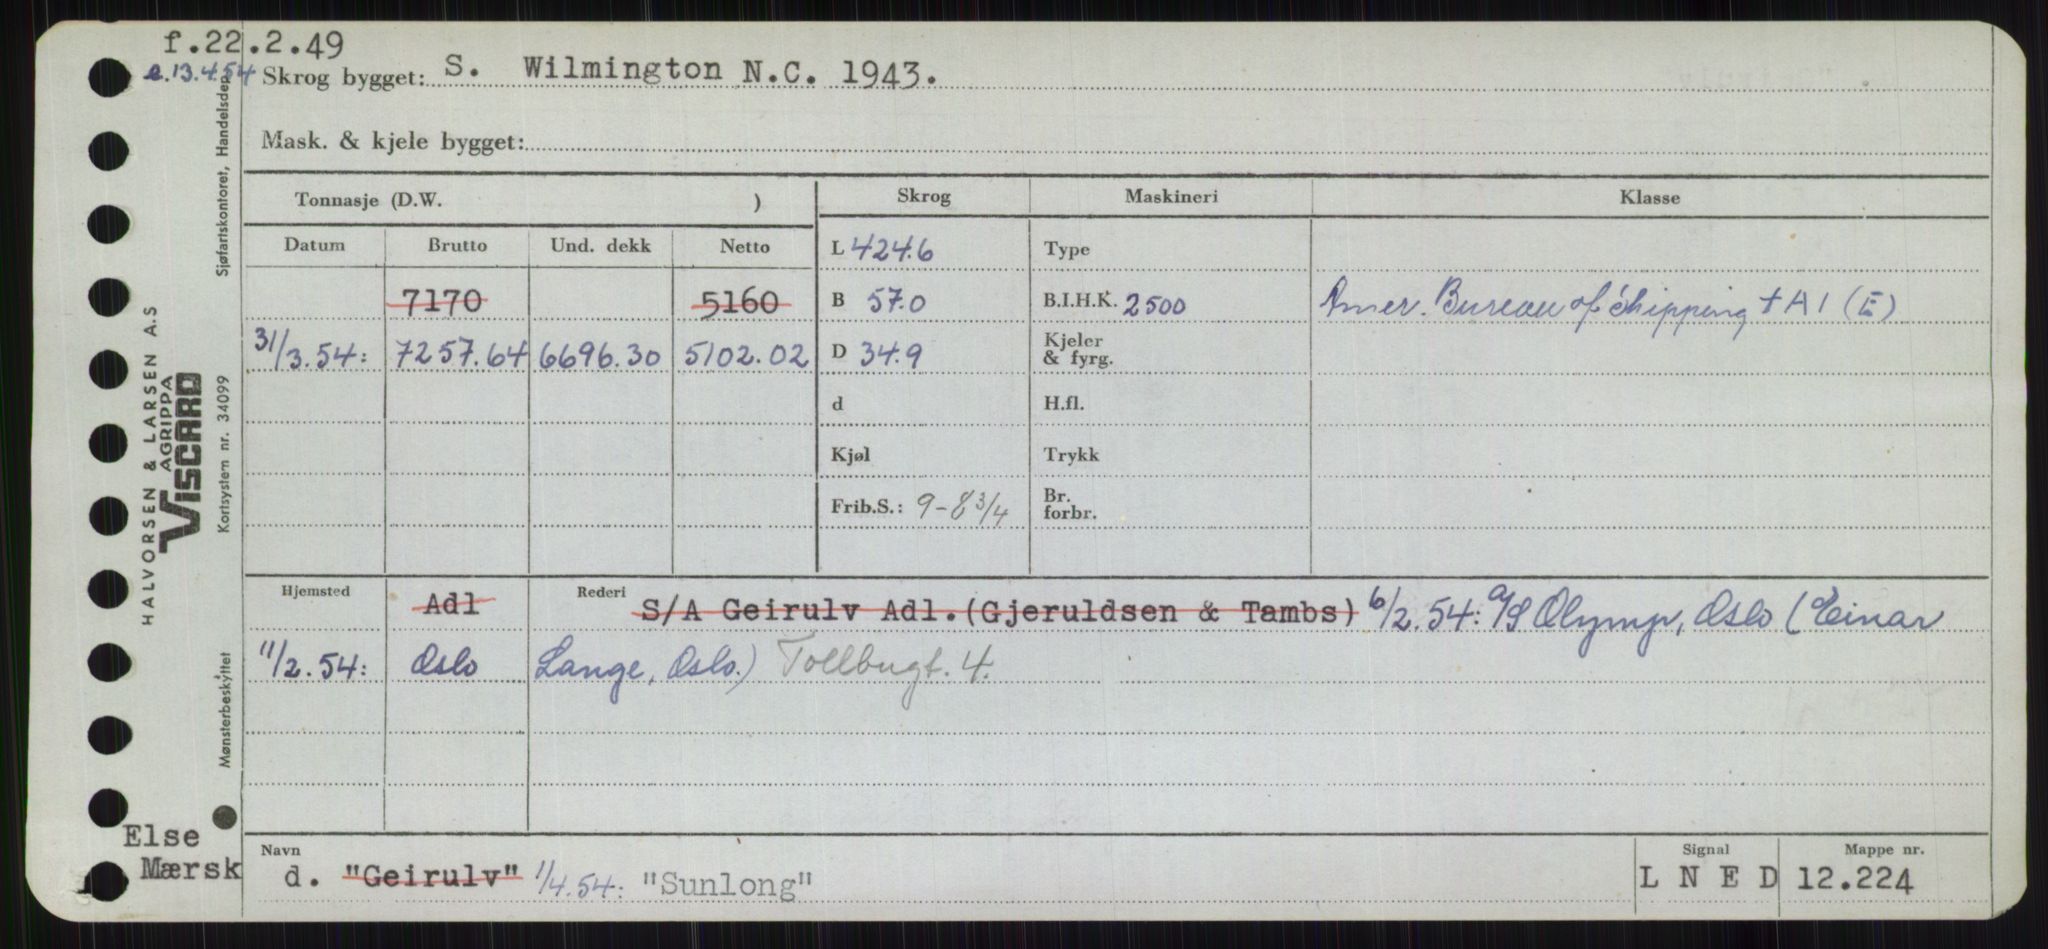 f.22.2.49
e.13.4.54 Skrog bygget: S. Wilmington N.C. 1943.
Mask. & kjele bygget:
Tonnasje (D.W. ) Skrog Maskineri Klasse
Datum Brutto Und. dekk Netto L 424.6 Type
7170 5160 B 57.0 B.I.H.K. 2500 Amer. Bureau of Shipping + A 1 (E)
31/3.54: 7257.64 6696.30 5102.02 D 34.9 Kjeler & fyrg.
d H.fl.
Kjøl Trykk
Frib.S.: 9-8 3/4 Br. forbr.
Hjemsted Adl Rederi S/A Geirulv Adl.(Gjeruldsen & Tambs) 6/2.54: A/S Olymp, Oslo (Einar
11/2.54: Oslo Lange, Oslo.) Tollbugt. 4.
Navn Signal Mappe nr.
d. "Geirulv" 1/4.54: "Sunlong" L N E D 12.224
Else
Mærsk
HALVORSEN & LARSEN A.S
AGRIPPA
VISCARD
Mønsterbeskyttet Kortsystem nr. 34099 Sjøfartskontoret, Handelsdep.